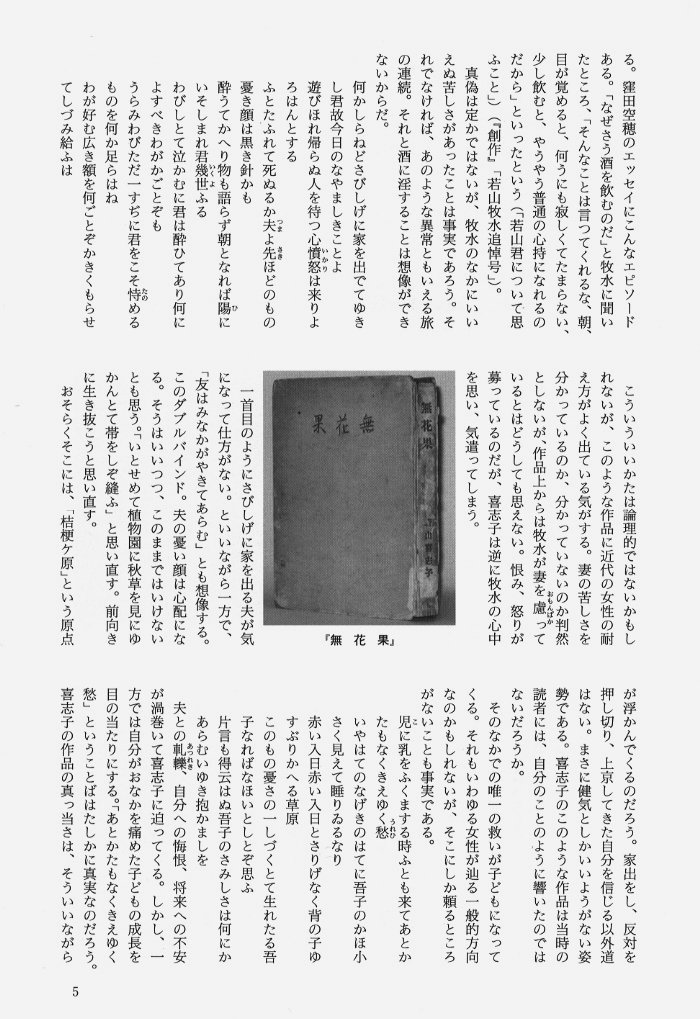 る。窪田空穂のエッセイにこんなエピソード
ある。「なぜさう酒を飲むのだ」と牧水に聞い
たところ、「そんなことは言つてくれるな、朝、
目が覚めると、何うにも寂しくてたまらない、
少し飲むと、やうやう普通の心持になれるの
だから」といったという（「若山君について思
ふこと」）（『創作』「若山牧水追悼号」）。
真偽は定かではないが、牧水のなかにいい
えぬ苦しさがあったことは事実であろう。そ
れでなければ、あのような異常ともいえる旅
の連続。それと酒に淫することは想像ができ
ないからだ。
何かしらねどさびしげに家を出でてゆき
し君故今日のなやましきことよ
遊びほれ帰らぬ人を待つ心憤怒は来りよ
いかり
ろはんとする
ふとたふれて死ぬるか夫よ先ほどのもの
つま
さき
憂き顔は黒き針かも
酔うてかへり物も語らず朝となれば陽に
ひ
いそしまれ君幾世ふる
いくよ
わびしとて泣かむに君は酔ひてあり何に
よすべきわがかごとぞも
うらみわびただ一すぢに君をこそ恃める
たの
ものを何か足らはね
わが好む広き額を何ごとぞかきくもらせ
てしづみ給ふは
こういういいかたは論理的ではないかもし
れないが、このような作品に近代の女性の耐
え方がよく出ている気がする。妻の苦しさを
分かっているのか、分かっていないのか判然
としないが、作品上からは牧水が妻を慮って
おもんぱか
いるとはどうしても思えない。恨み、怒りが
募っているのだが、喜志子は逆に牧水の心中
を思い、気遣ってしまう。
無花果
無花果
『無花果』
一首目のようにさびしげに家を出る夫が気
になって仕方がない。といいながら一方で、
「友はみなかがやきてあらむ」とも想像する。
このダブルバインド。夫の憂い顔は心配にな
る。そうはいいつつ、このままではいけない
とも思う。「いとせめて植物園に秋草を見にゆ
かんとて帯をしぞ縫ふ」と思い直す。前向き
に生き抜こうと思い直す。
おそらくそこには、「桔梗ケ原」という原点
が浮かんでくるのだろう。家出をし、反対を
押し切り、上京してきた自分を信じる以外道
はない。まさに健気としかいいようがない姿
勢である。喜志子のこのような作品は当時の
読者には、自分のことのように響いたのでは
ないだろうか。
そのなかでの唯一の救いが子どもになって
くる。それもいわゆる女性が辿る一般的方向
なのかもしれないが、そこにしか頼るところ
がないことも事実である。
児に乳をふくまする時ふとも来てあとか
こ
たもなくきえゆく愁
うれひ
いやはてのなげきのはてに吾子のかほ小
さく見えて睡りゐるなり
赤い入日赤い入日とさりげなく背の子ゆ
すぶりかへる草原
このもの憂さの一しづくとて生れたる吾
子なればなほいとしとぞ思ふ
片言も得云はぬ吾子のさみしさは何にか
あらむいゆき抱かましを
夫との軋轢、自分への悔恨、将来への不安
あつれき
が渦巻いて喜志子に迫ってくる。しかし、一
方では自分がおなかを痛めた子どもの成長を
目の当たりにする。「あとかたもなくきえゆく
愁」ということばはたしかに真実なのだろう。
喜志子の作品の真っ当さは、そういいながら
5